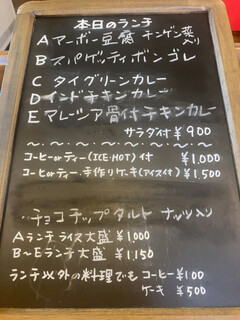 本日のランチ
A マーボー豆腐 チンゲン菜入り
B スパゲッティボンゴレ
C タイグリーンカレー
D インドチキンカレー
E マレーシア骨付チキンカレー
サラダ付 ¥900
～・～・～・～・～・～・～・～
コーヒーorティー(ICE・HOT)付 ¥1,000
コーヒーorティー・手作りケーキ(アイス付) ¥1,500
チョコチップタルト ナッツ入り
Aランチ ライス大盛 ¥1,000
B～Eランチ 大盛 ¥1,150
ランチ以外の料理でも コーヒー¥100
ケーキ ¥500